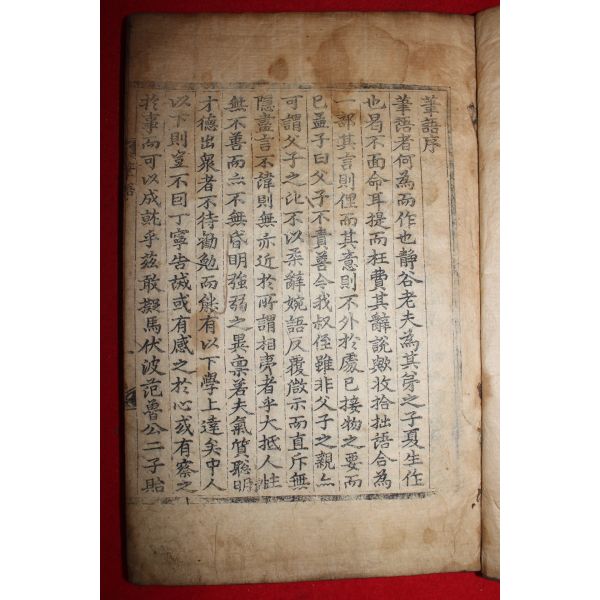 筆語序
筆語者何爲而作也靜谷老夫爲其弟之子夏生作
也曷不面命耳提而枉費其辭說歟收拾拙語合爲
一部其言則俚而其意則不外於處已接物之要而
已孟子曰父子不責善今我叔侄雖非父子之親亦
可謂父子之比不以柔辭婉語反覆微示而直斥無
隱盡言不諱則無亦近於所謂相夷者乎大抵人性
無不善而亦不無昏明強弱之異稟若夫氣質聡明
才德出衆者不待勸勉而能有以下學上達矣中人
以下則豈不曰丁寧告誡或有感之於心或有察之
於事而可以成就乎玆敢擬馬伏波范魯公二子貽